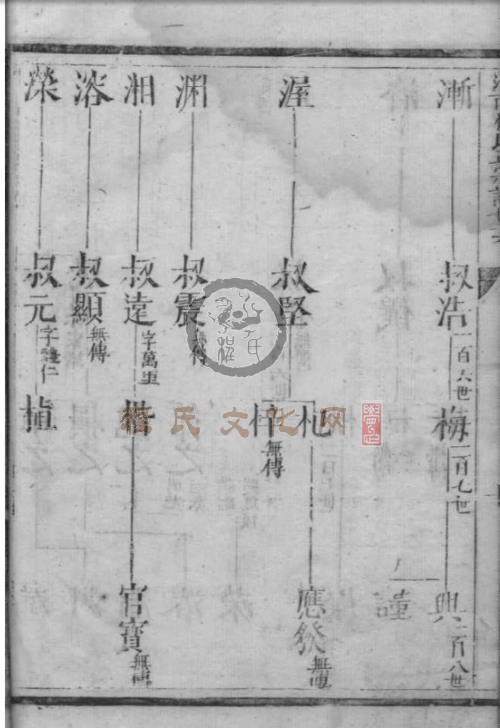 漸
叔浩 一百六世
梅 一百七世
興 一百八世
謹
渥
叔堅
杞
應發 無傳
無傳
渊
叔震 無傳
湘
叔遠 字萬里
官寶 無傳
溶
叔顯 無傳
濚
叔元
氏文化网